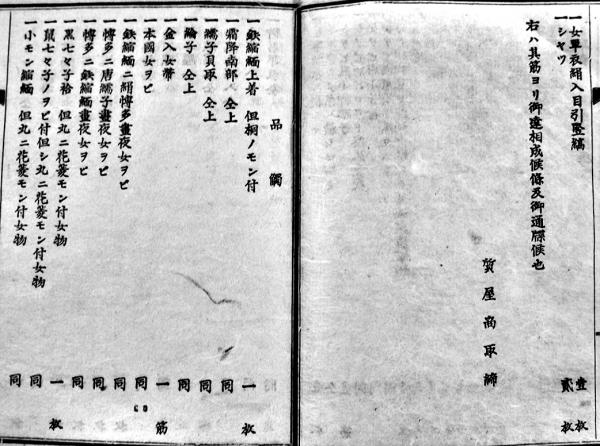 一女単衣絹入目引竪縞 壹枚
一シャツ 貳枚
右ハ其筋ヨリ御達相成候條及御通牒候也
質屋商取締
品觸
一鉄縮緬上着 但桐ノモン付 一枚
一霜降南部 仝上 同
一繻子貝取 仝上 同
一綸子 仝上 同
一金入女帯 一筋
一本國女ヲビ 同
一鉄縮緬ニ絹博多晝夜女ヲビ 同
一博多ニ唐繻子晝夜女ヲビ 同
一博多ニ鉄縮緬晝夜女ヲビ 同
一黒七々子袷 但丸ニ花菱モン付女物 一枚
一鼠七々子ノヲヒ付但シ丸ニ花菱モン付女物 同
一小モン縮緬 但丸ニ花菱モン付女物 同